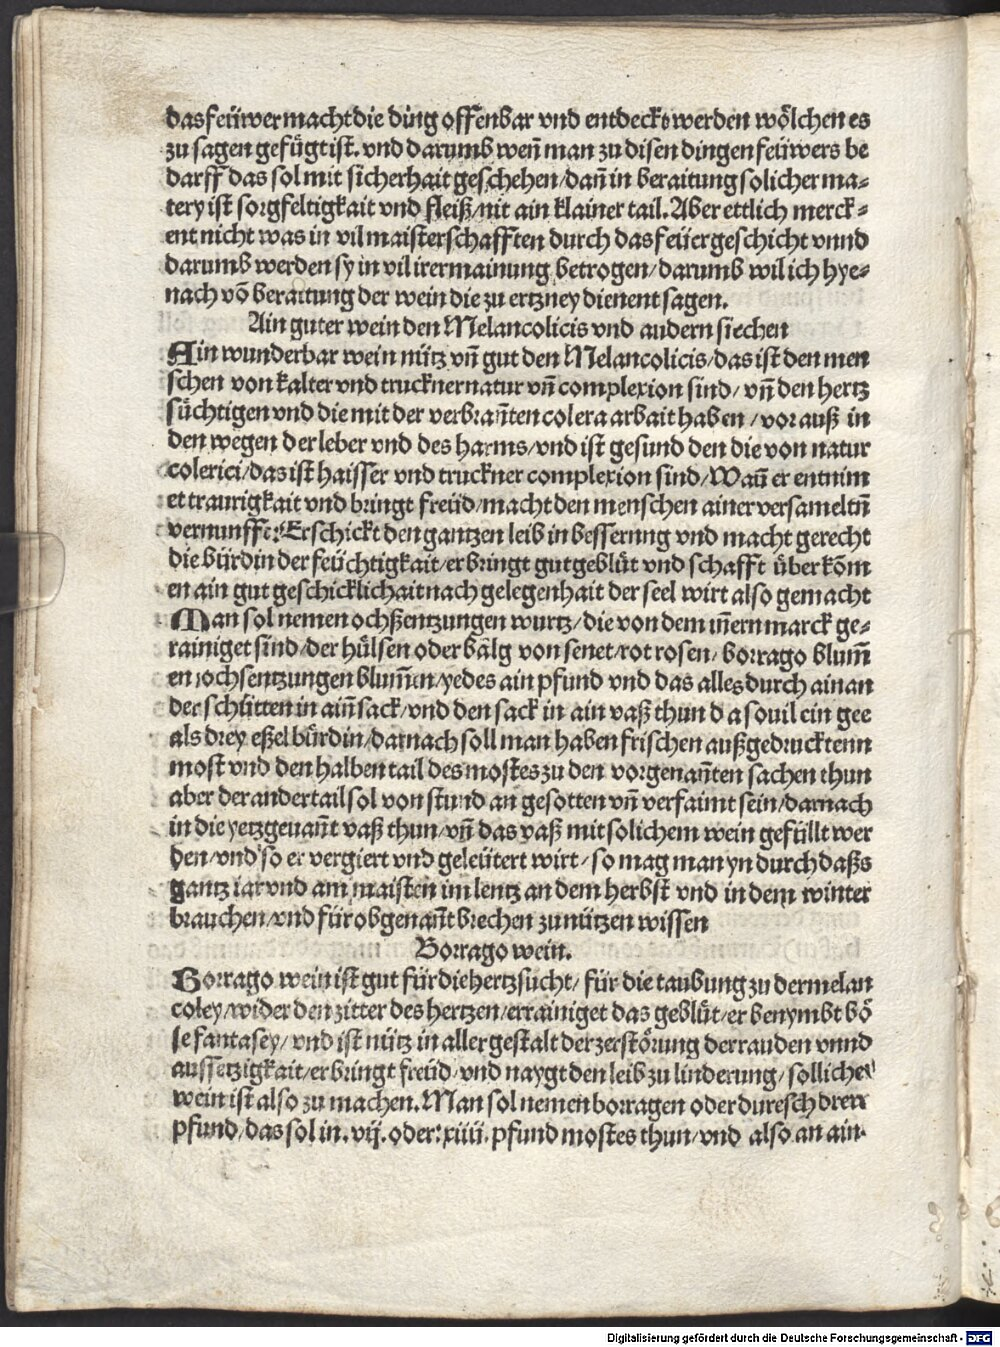 das feüwer macht die ding offenbar vnd entdeckt werden wölchen es
zu sagen gefügt ist. vnd darumb weñ man zu disen dingen feüwers be
darff das sol mit sicherhait geschehen/ dañ in beraitung solicher ma-
tery ist sorgfeltigkait vnd fleiß/ nit ain klainer tail. Aber ettlich merck-
ent nicht was in vil maisterschafften durch das feüer geschicht vnnd
darumb werden sy in vil irer mainung betrogen/ darumb wil ich hye-
nach võ beraitung der wein die zu ertzney dienent sagen.
Ain guter wein den Melancolicis vnd andern siechen
Ain wunderbar wein nütz vñ gut den Melancolicis/ das ist den men
schen von kalter vnd truckner natur vñ complexion sind/ vñ den hertz
süchtigen vnd die mit der verbrañten colera arbait haben/ vorauß in
den wegen der leber vnd des harns/ vnd ist gesund den die von natur
colerici/ das ist haisser vnd truckner complexion sind/ Wañ er entnim
et traurigkait vnd bringt freüd/ macht den menschen ainer versameltñ
vernunfft: Er schickt den gantzen leib in besserung vnd macht gerecht
die bürdin der feüchtigkait/ er bringt gut geblüt vnd schafft überkõm
en ain gut geschicklichait nach gelegenhait der seel wirt also gemacht
Man sol nemen ochßentzungen wurtz/ die von dem iñern marck ge-
rainiget sind/ der hülsen oder bälg von senet/ rot rosen/ borrago blum̃
en/ ochsentzungen blum̃en/ yedes ain pfund vnd das alles durch ainan
der schütten in aiñ sack/ vnd den sack in ain vaß thun da souil ein gee
als drey eßel bürdin/ darnach soll man haben frischen außgedrucktenn
most vnd den halben tail des mostes zu den vorgenañten sachen thun
aber der ander tail sol von stund an gesotten vñ verfaimt sein/ darnach
in die yetzgenañt vaß thun/ vñ das vaß mit solichem wein gefüllt wer
den/ vnd so er vergiert vnd geleütert wirt/ so mag man yn durch daßs
gantz iar vnd am maisten im lentz an dem herbst vnd in dem winter
brauchen/ vnd für obgenañt brechen zu nützen wissen
Borrago wein.
Borrago wein ist gut für die hertzsucht/ für die taubung zu der melan
coley/ wider den zitter des hertzen/ er rainiget das geblüt/ er benymbt bö
se fantasey/ vnd ist nütz in aller gestalt der zerstörung der rauden vnnd
aussetzigkait/ er bringt freüd/ vnd naygt den leib zu linderung/ sollicher
wein ist also zu machen. Man sol nemen borragen oder duresch drew
pfund/ das sol in .vij. oder: xiiii. pfund mostes thun/ vnd also an ain-
Digitalisierung gefördert durch die Deutsche Forschungsgemeinschaft - DFG